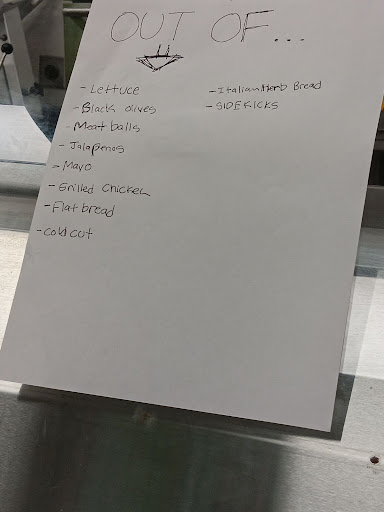 OUT OF...
- Lettuce
- Black olives
- Meat balls
- Jalapenos
- Mayo
- Grilled Chicken
- Flat bread
- cold cut
- Italian Herb Bread
- SIDEKICKS